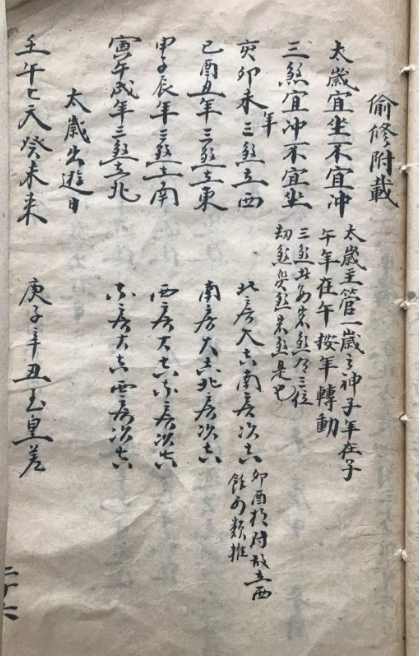 偷修附載
太歲宜坐不宜冲
太歲主管一歲之神子年在子
午年在午按年轉動
三煞宜冲不宜坐
三煞
劫煞災煞歲煞是也
亥卯未年三煞在西
北房大吉南房次吉
卯酉相對故在西
餘可類推
巳酉丑年三煞在東
南房大吉北房次吉
申子辰年三煞在南
西房大吉東房次吉
寅午戌年三煞在北
東房大吉西房次吉
太歲出遊日
壬午七天癸未来
庚子辛丑玉皇差
二十六